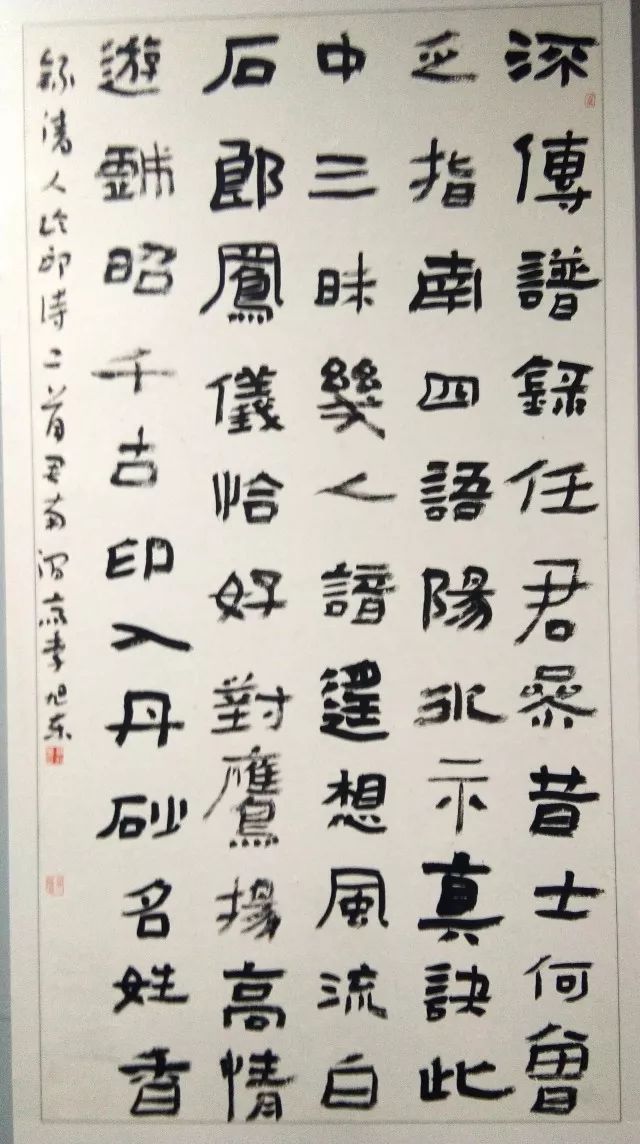 深傳譜錄任君參昔士何曾
乏指南四語陽冰示真訣此
中三昧幾人諳想風流白
石郎鳳儀恰好對鷹揚高情
遊戲昭千古印入丹砂名姓香
錄清人论印诗二首李旭东